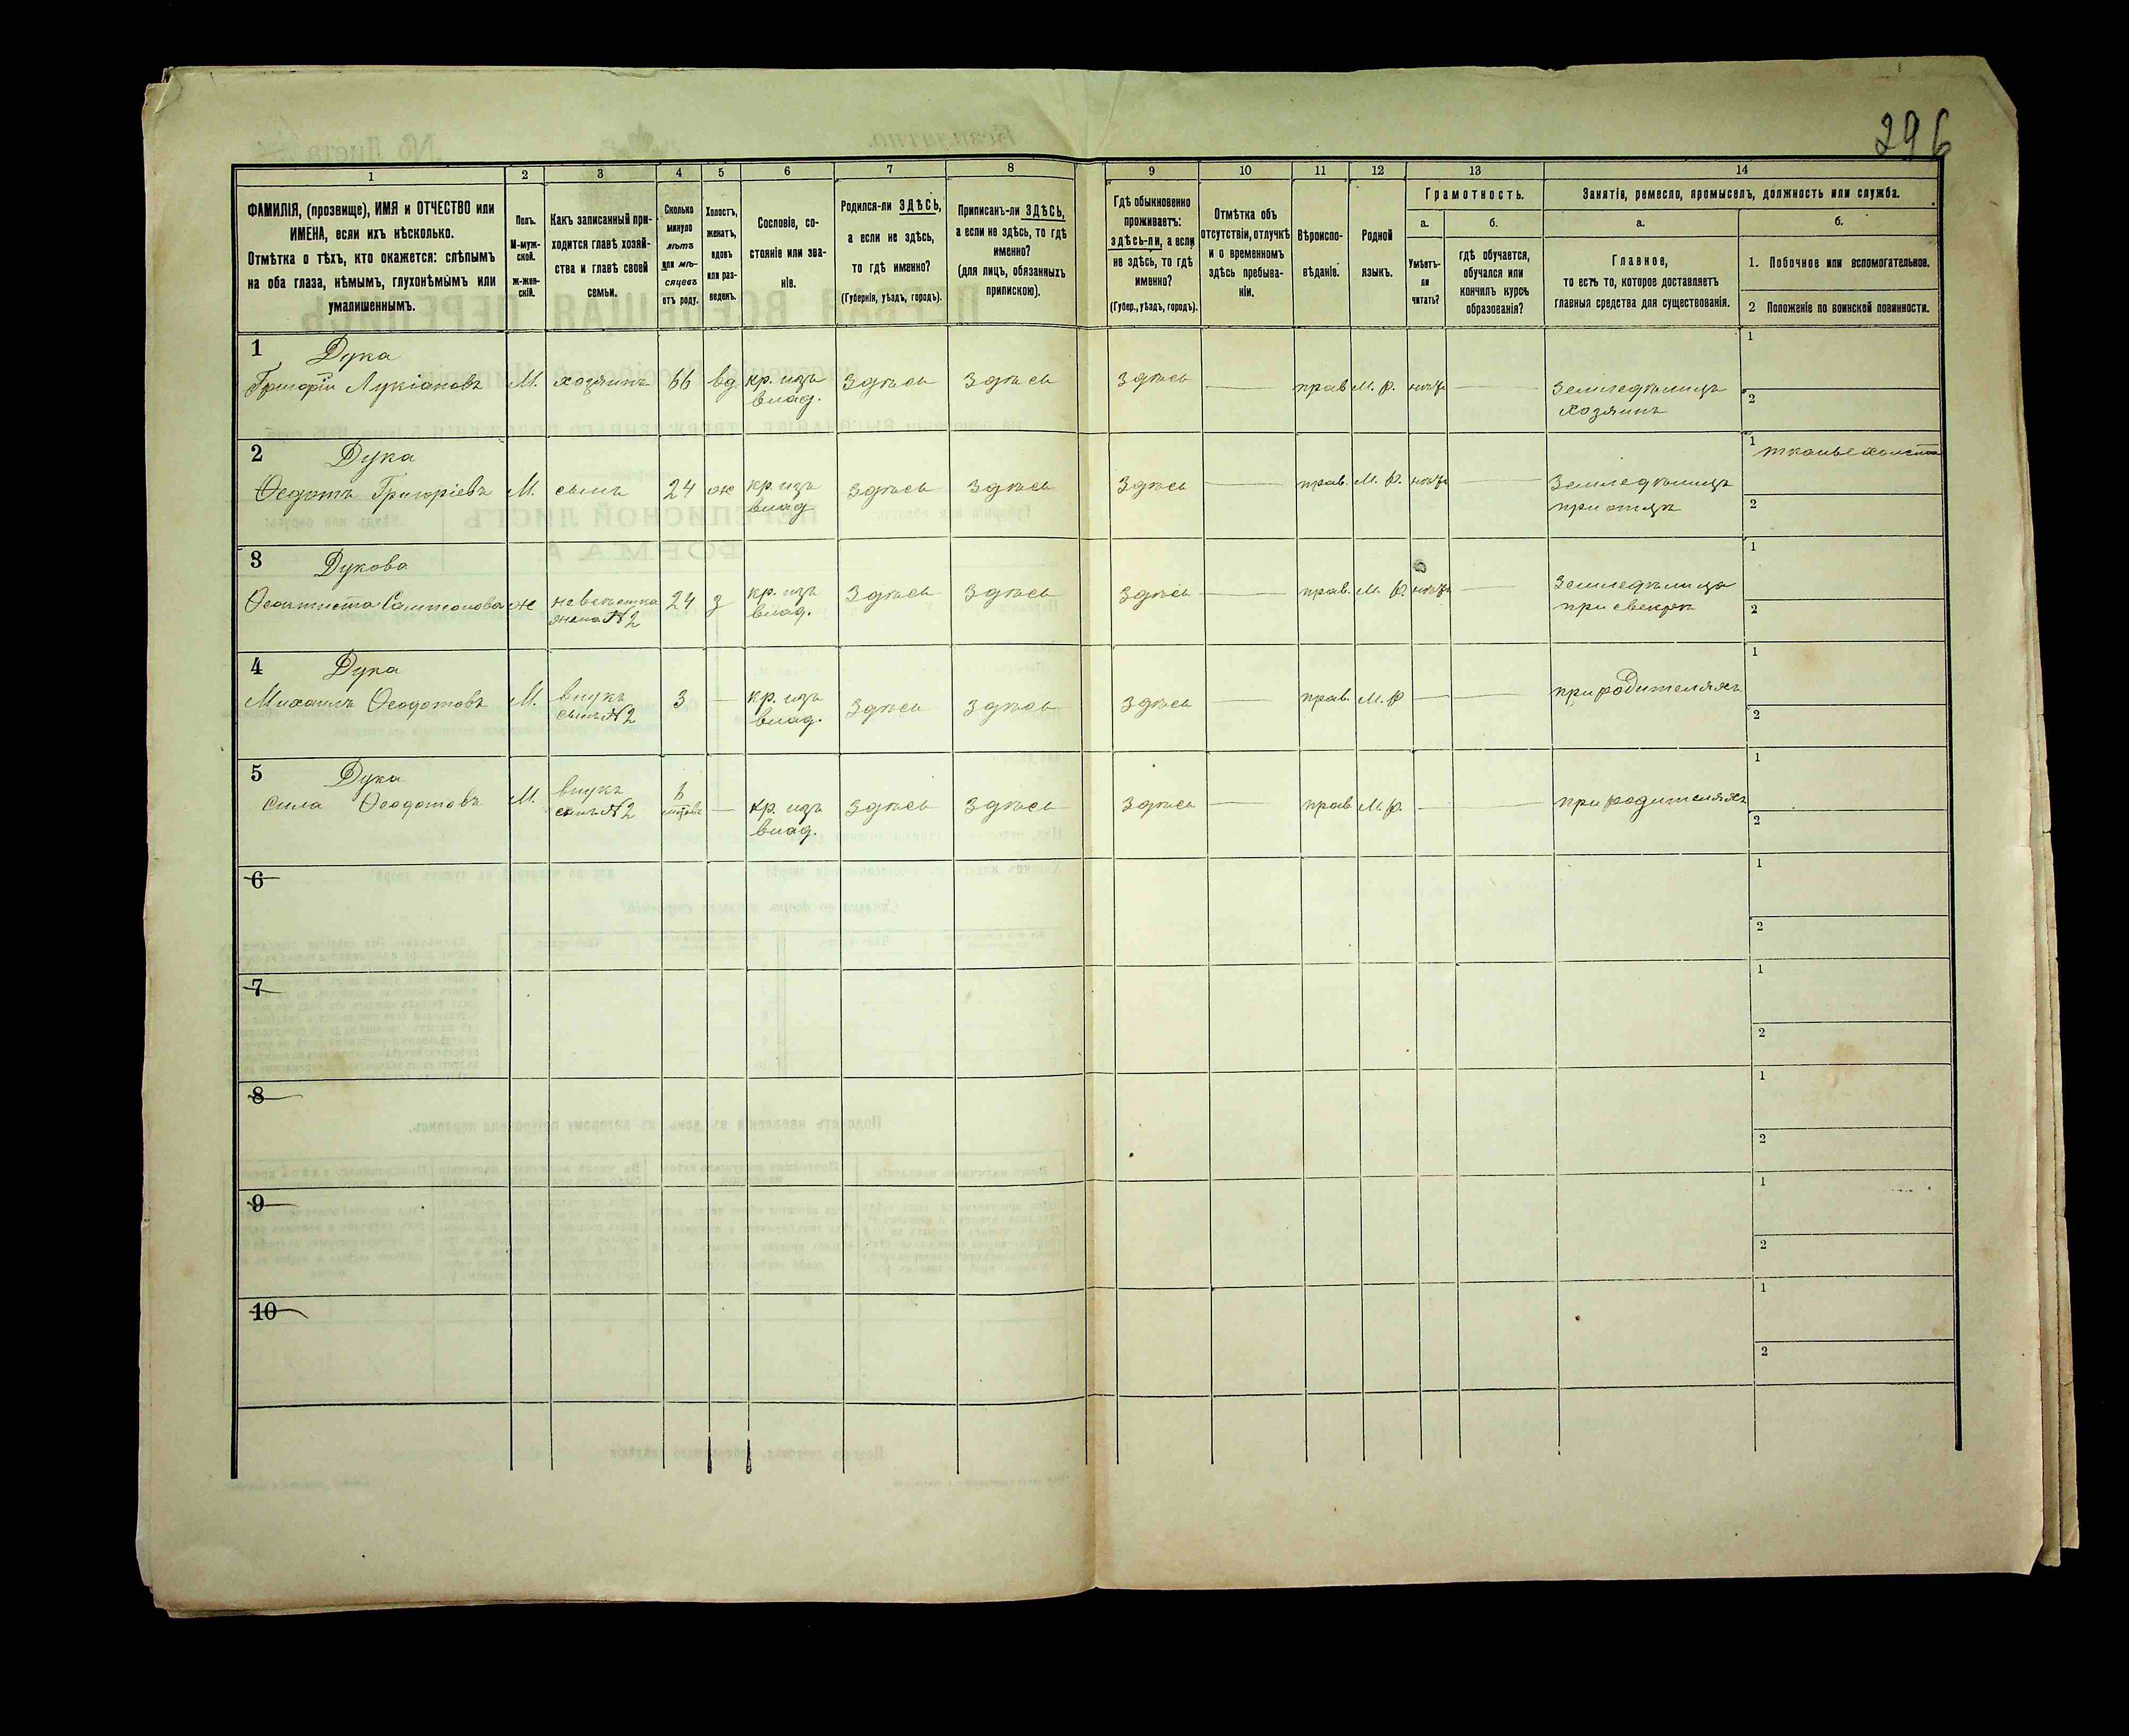 296
1
2
3
4
5
6
7
8
9
10
11
12
13
14
ФАМИЛІЯ, (прозвище), ИМЯ и ОТЧЕСТВО или
ИМЕНА, если ихъ нѣсколько.
Отмѣтка о тѣхъ, кто окажется: слѣпымъ
на оба глаза, нѣмымъ, глухонѣмымъ или
умалишеннымъ.
Полъ.
М-муж-
ской.
ж-жен-
скій.
Какъ записанный при-
ходится главѣ хозяй-
ства и главѣ своей
семьи.
Сколько
минуло
лѣтъ
или мѣ-
сяцевъ
отъ роду.
Холостъ,
женатъ,
вдовъ
или раз-
веденъ.
Сословіе, со-
стояніе или зва-
ніе.
Родился-ли ЗДѢСЬ,
а если не здѣсь,
то гдѣ именно?
(Губернія, уѣздъ, городъ).
Приписанъ-ли ЗДѢСЬ,
а если не здѣсь, то гдѣ
именно?
(для лицъ, обязанныхъ
припискою).
Гдѣ обыкновенно
проживаетъ:
здѣсь-ли, а если
не здѣсь, то гдѣ
именно?
(Губер., уѣздъ, городъ).
Отмѣтка объ
отсутствіи, отлучкѣ
и о временномъ
здѣсь пребыва-
ніи.
Вѣроиспо-
вѣданіе.
Родной
языкъ.
Грамотность.
а.
Умѣетъ-
ли
читать?
б.
гдѣ обучается,
обучался или
кончилъ курсъ
образованія?
Занятія, ремесло, промыселъ, должность или служба.
а.
Главное,
то есть то, которое доставляетъ
главныя средства для существованія.
б.
1. Побочное или вспомогательное.
2 Положеніе по воинской повинности.
1 Дука
Григорій Лукіановъ М. хозяинъ 66 вд кр. изъ здѣсь здѣсь здѣсь — прав М. р. нѣтъ — Земледѣлецъ
влад. хозяинъ
1
2
2 Дука
Ѳедотъ Григоріевъ М. сынъ 24 ж кр. изъ здѣсь здѣсь здѣсь — прав. М. р. нѣтъ — Земледѣлецъ
влад при отцѣ
1 тканье холста
2
3 Дукова
Ѳеоктиста Сампсонова ж невѣстка 24 з кр. изъ здѣсь здѣсь здѣсь — прав. М. р. нѣтъ — Земледѣлица
жена №2 влад. при свекрѣ
1
2
4 Дука
Михаилъ Ѳеодотовъ М. внукъ 3 — кр. изъ здѣсь здѣсь здѣсь — прав. М. р — — при родителяхъ
сынъ №2 влад.
1
2
5 Дука
Сила Ѳеодотовъ М. внукъ 6 — кр. изъ здѣсь здѣсь здѣсь — прав М. р. — — при родителяхъ
сынъ №2 влад.
1
2
6
1
2
7
1
2
8
1
2
9
1
2
10
1
2